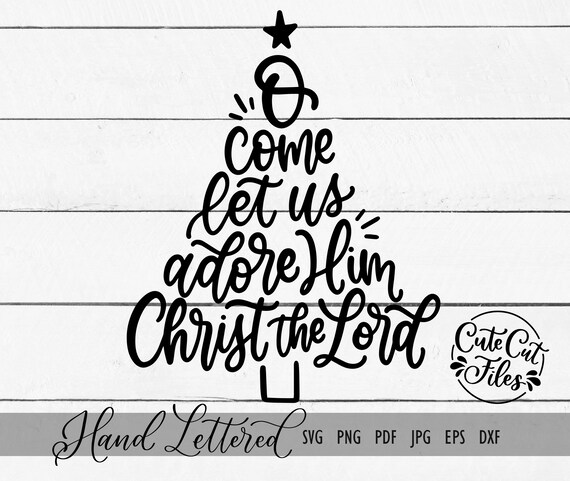 O
come
let us
adore Him
Christ the Lord
Cute Cut
Files
Hand Lettered SVG PNG PDF JPG EPS DXF